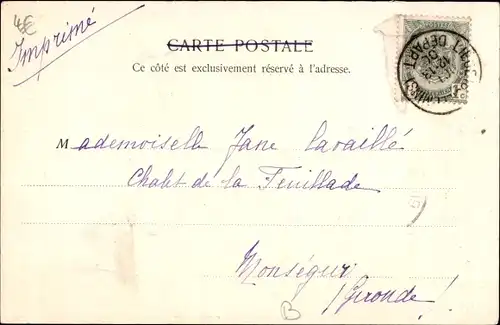 4€
Imprimé
CARTE POSTALE
Ce côté est exclusivement réservé à l'adresse.
Mademoiselle Jane Lavaillé
Chalet de la Feuillade
Monségur
Gironde!
B
DEPART